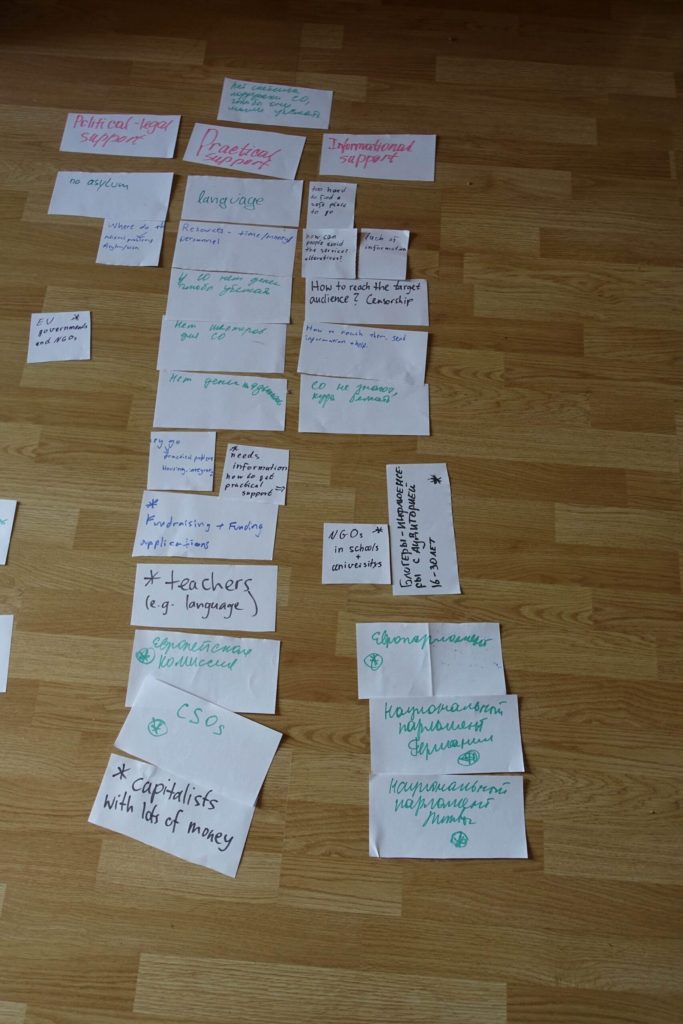 поддержки СО,
чтобы они
могли уезжать
Political-legal
support
Practical
support
Informational
support
no asylum
Where do the
language
too hard
to find a
safe place
to go
Resources - time/money
personnel
how can
people avoid
the service?
lack of
information
У СО нет денег
чтобы уезжать
How to reach the target
audience? Censorship
EU *
governments
and NGOs
Нет шелтеров
для СО
How to reach them, send
information + help.
Нет денег
СО не знают,
куда бежать
practical problems
*
needs
information
how to get
practical
support ⇒
*
Fundraising + Funding
applications
NGOs *
in schools
+
universitys
*
Блогеры-инфлюенсе-
ры с аудиторией
16-30 лет
* teachers
(e.g. language)
Европейская
комиссия
*
Европарламент
*
CSOs
*
Национальный
парламент
Германии
*
* capitalists
with lots of money
Национальный
парламент
Литвы
*